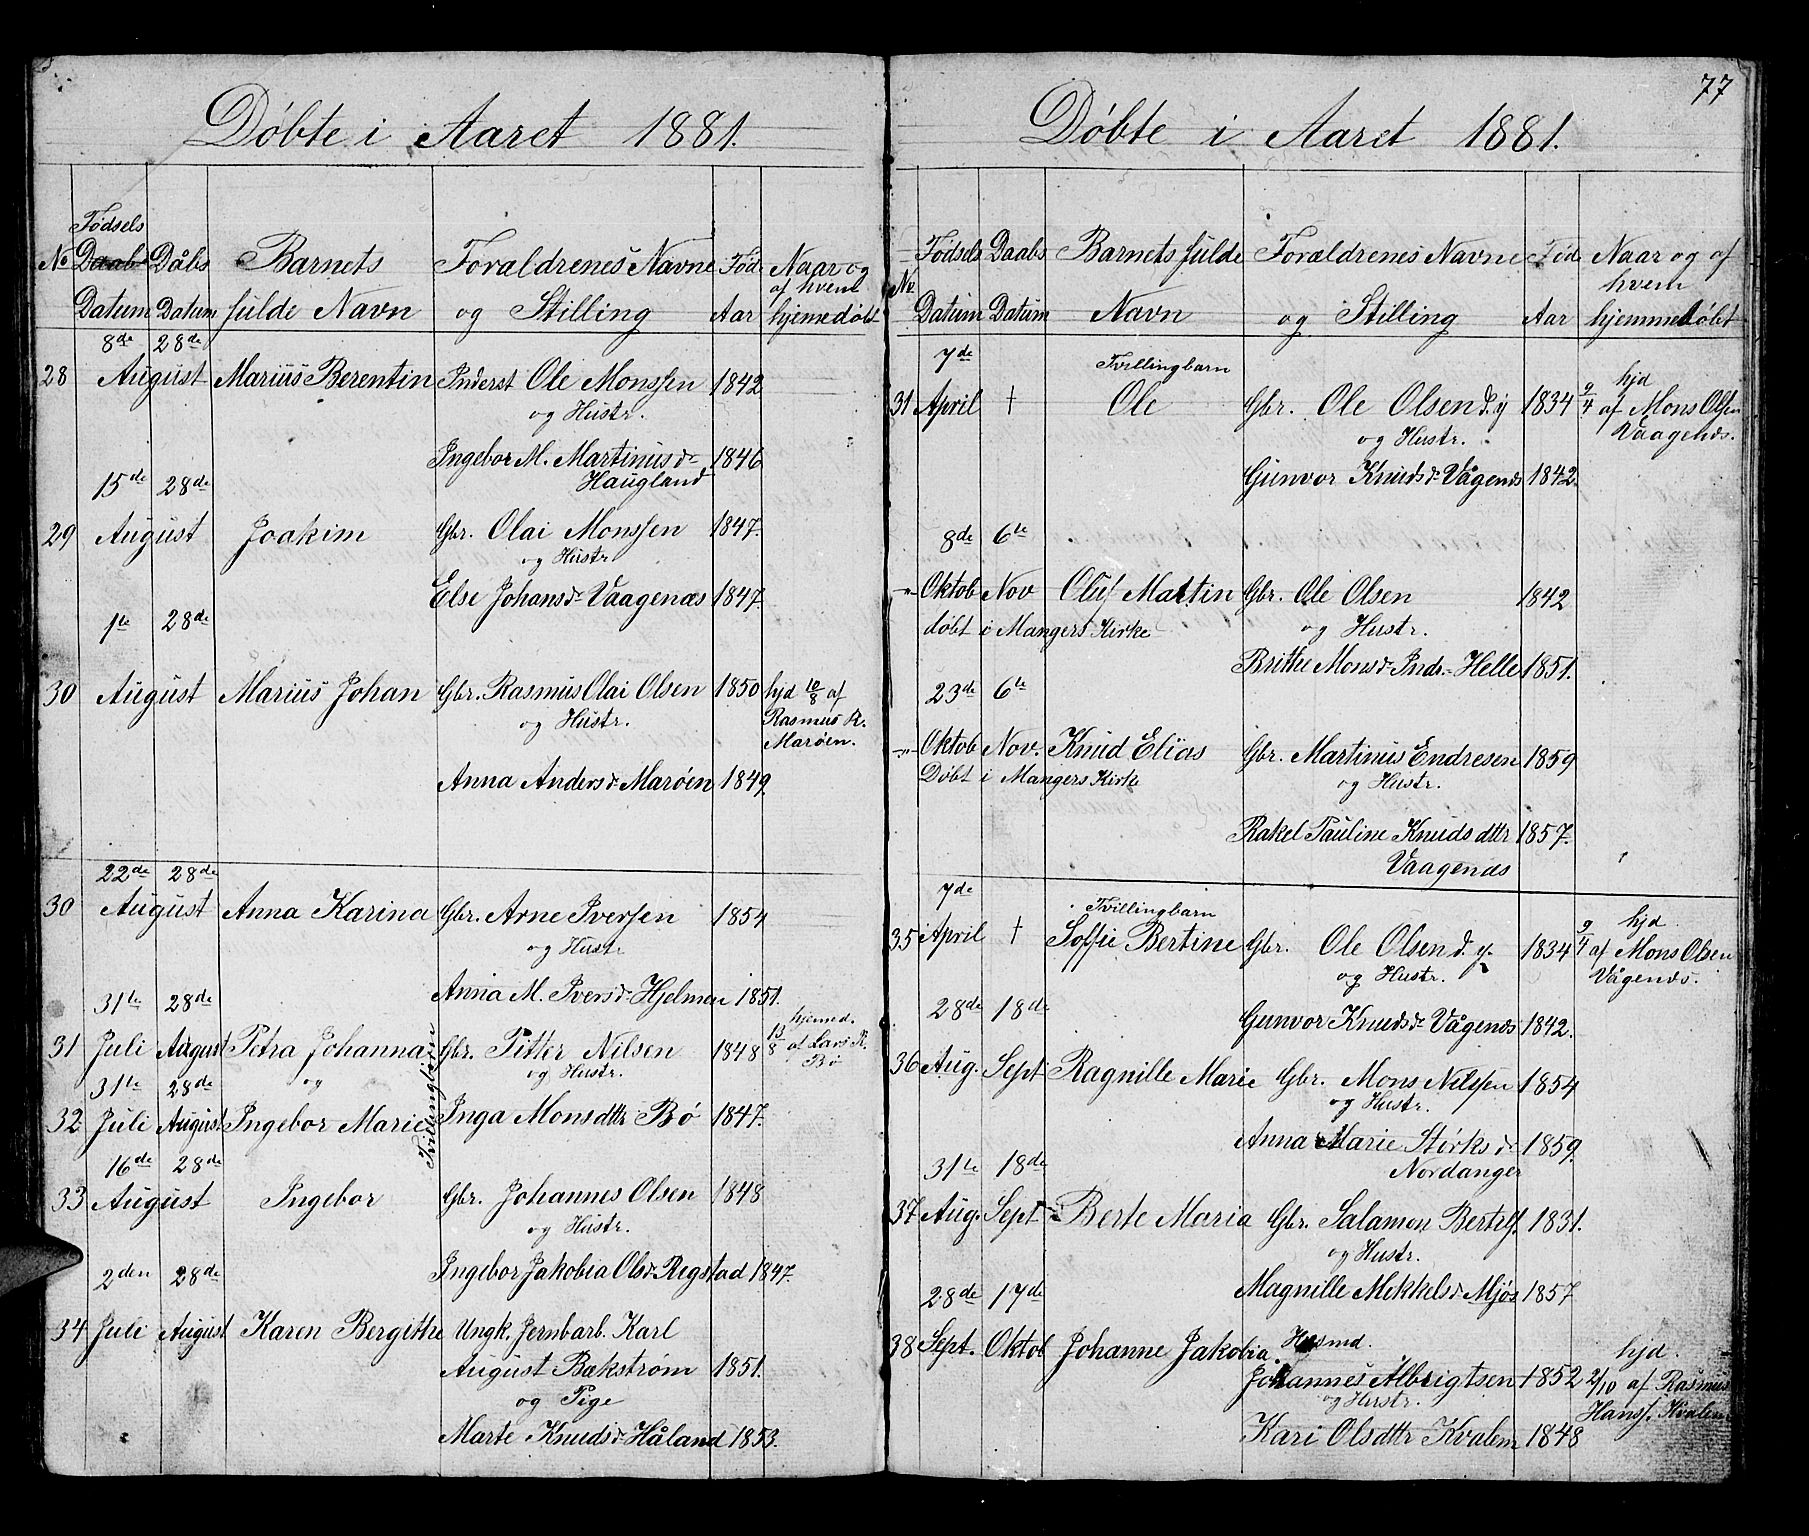 Døbte i Aaret 1881.
Fødsels
No Daabs Dåbs Barnets Foraldrenes Navne Fød. Naar og
af hvem
Datum Datum fulde Navn og Stilling Aar hjemedøbt
8de 28de
28 August Marius Berentin Inderst Ole Monssen 1842
og Hustr.
Ingebor M. Martinusdr 1846
Haugland
15de 28de
29 August Joakim Gbr. Olai Monssen 1847.
og Hustr
Else Johansdr Vaagenæs 1847.
1te 28de
30 August Marius Johan Gbr. Rasmus Olai Olsen 1850 hjd 10/8 af
og Hustr. Rasmus R.
Marøen.
Anna Andersdr Marøen 1849.
22de 28de
30 August Anna Karina Gbr. Arne Iversen 1854
og Hustr
Anna M. Iversdr Hjelmen 1851.
31te 28de
hjemed.
31 Juli August Petra Johanna Gbr. Pitter Nilsen 1848 13/8 af Lars R.
og og Hustr. Bø
31te 28de
32 Juli August Ingebor Marie Inga Monsdttr Bø 1847.
Tvillingbørn
16de 28de
33 August Ingebor Gbr. Johannes Olsen 1848
og Hustr.
Ingebor Jakobia Olsdr Rigstad 1847.
2den 28de
34 Juli August Karen Bergithe Ungk. Jernbarb. Karl
August Bækstrøm 1851.
og Pige
Marte Knudsdr Håland 1853.
77
Døbte i Aaret 1881.
No Fødsels Daabs Barnets fulde Forældrenes Navne Fød Naar og af
hvem
Datum Datum Navn og Stilling Aar hjemmedøbt
7de
Tvillingbarn hjd
31 April † Ole Gbr. Ole Olsen d. y 1834 9/4 af Mons Olsen
og Hustr. Vaagenæs.
Gunvor Knudsdr Vågenæs 1842.
8de 6te
-"- Oktob Nov Oluf Martin Gbr. Ole Olsen 1842
døbt i Mangers Kirke og Hustr.
Brithe Monsdr Indr. Helle 1851.
23de 6te
-"- Oktob Nov. Knud Elias Gbr. Martinus Endresen 1859
Døbt i Mangers Kirke og Hustr.
Rakel Pauline Knudsdttr 1857.
Vaagenæs
7de
Tvillingbarn hjd.
35 April † Soffie Bertine Gbr. Ole Olsen d. y. 1834 9/4 af Mons Olsen
og Hustr. Vågenæs.
Gunvor Knudsdr Vågenæs 1842.
28de 18de
36 Aug. Sept Ragnille Marie Gbr. Mons Nilssen 1854
og Hustr.
Anna Marie Størksdr 1859.
Nordanger
31te 18de
37 Aug. Sept Berte Maria Gbr. Salamon Bertelf. 1831.
og Hustr.
Magnille Mikkelsdr Mjøs 1857
28de 17de
38 Sept. Oktob Johanne Jakobia. Husmd. hjd.
Johannes Albrigtsen 1852 2/10 af Rasmus
og Hustr. Hansf. Kvalem
Kari Olsdttr Kvalem 1848